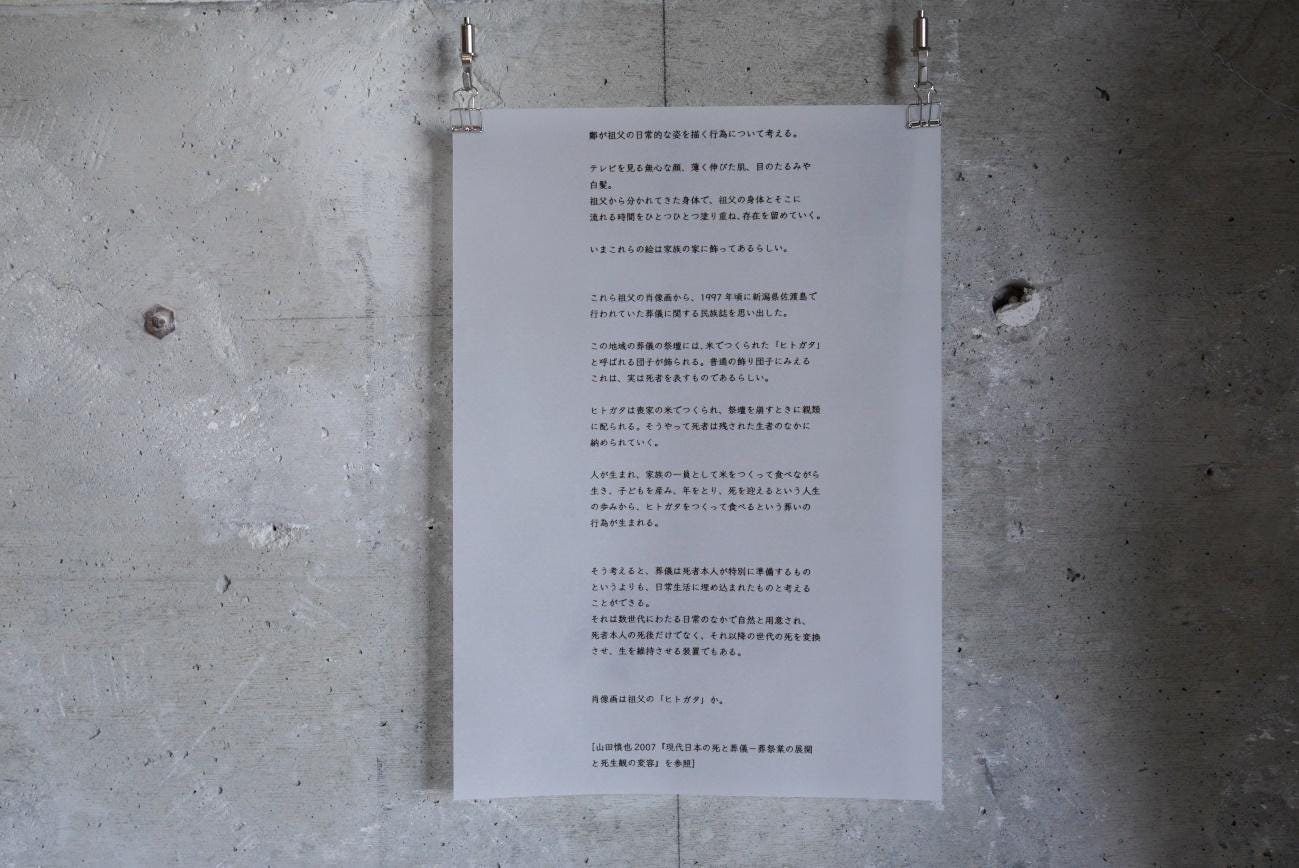 鄭が祖父の日常的な姿を描く行為について考える。
テレビを見る無心な顔、薄く伸びた肌、目のたるみや
白髪。
祖父から分かれてきた身体で、祖父の身体とそこに
流れる時間をひとつひとつ塗り重ね、存在を留めていく。
いまこれらの絵は家族の家に飾ってあるらしい。
これら祖父の肖像画から、1997 年頃に新潟県佐渡島で
行われていた葬儀に関する民族誌を思い出した。
この地域の葬儀の祭壇には、米でつくられた「ヒトガタ」
と呼ばれる団子が飾られる。普通の飾り団子にみえる
これは、実は死者を表すものであるらしい。
ヒトガタは喪家の米でつくられ、祭壇を崩すときに親類
に配られる。そうやって死者は残された生者のなかに
納められていく。
人が生まれ、家族の一員として米をつくって食べながら
生き、子どもを産み、年をとり、死を迎えるという人生
の歩みから、ヒトガタをつくって食べるという葬いの
行為が生まれる。
そう考えると、葬儀は死者本人が特別に準備するもの
というよりも、日常生活に埋め込まれたものと考える
ことができる。
それは数世代にわたる日常のなかで自然と用意され、
死者本人の死後だけでなく、それ以降の世代の死を変換
させ、生を維持させる装置でもある。
肖像画は祖父の「ヒトガタ」か。
[山田慎也 2007『現代日本の死と葬儀－葬祭業の展開
と死生観の変容』を参照]